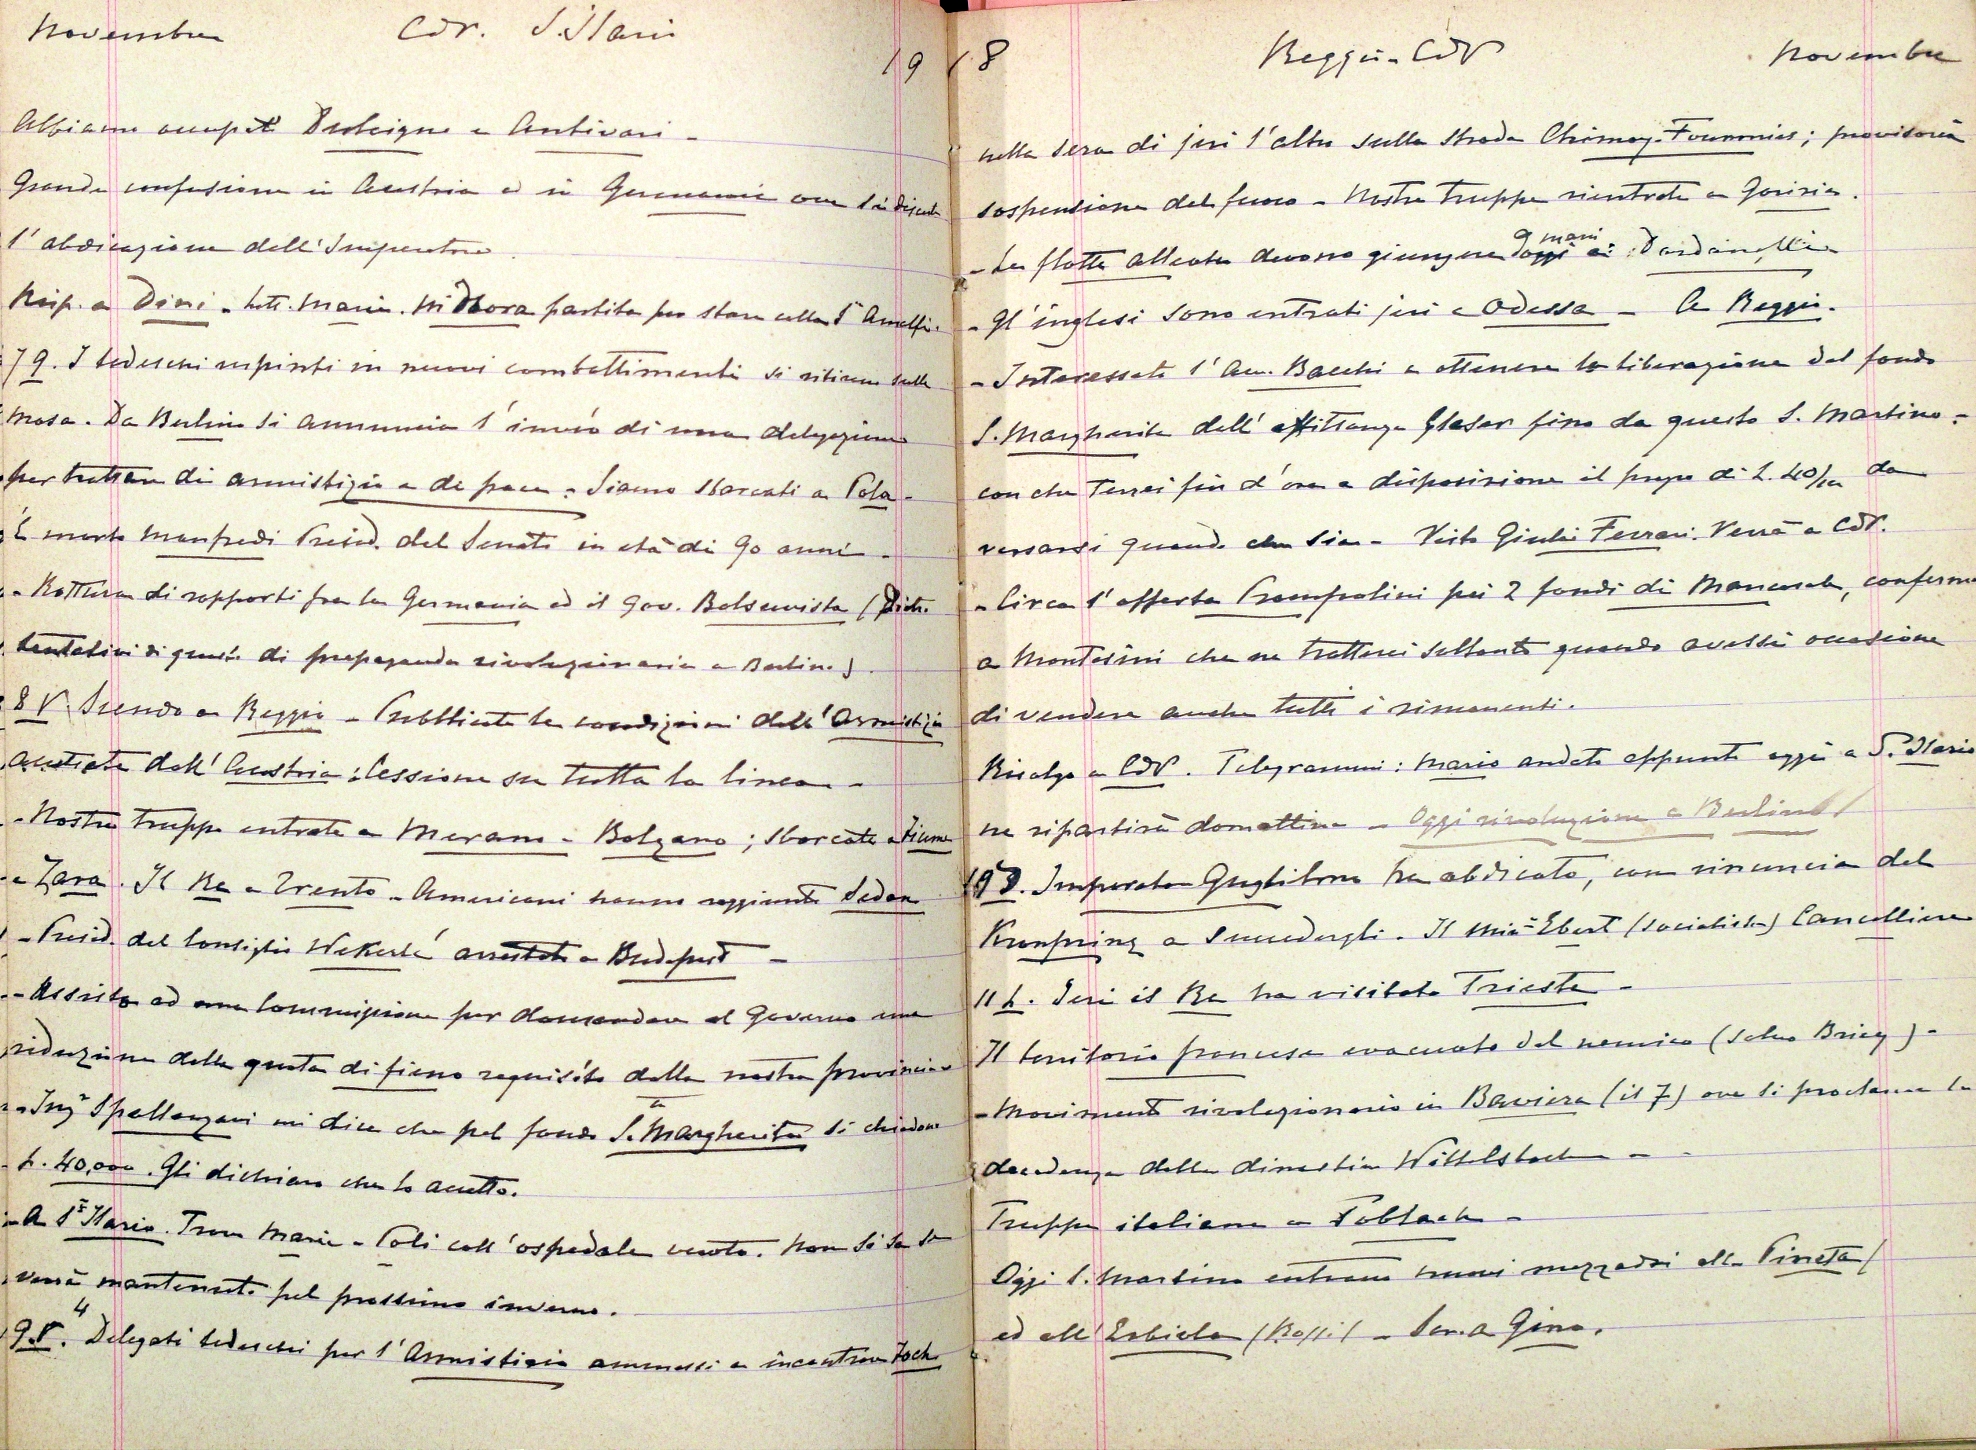 Novembre CdV. S. Ilario
19
Abbiamo occupato Dulcigno e Antivari -
Grande confusione in Austria ed in Germania ove si discute
l'abdicazione dell'Imperatore
Risp. a Dini - Lett. Maria. partita per stare colla Sa Amalfi.
7 g. I tedeschi respinti in nuovi combattimenti si ritirano sulla
Mosa. Da Berlino si annuncia l'invio di una delegazione
per trattare di armistizio e di pace - Siamo sbarcati a Pola -
È morto Manfredi Presid. del Senato in età di 90 anni -
- Rottura di rapporti fra la Germania ed il Gov. Bolsevista (
tentativi di questo di propaganda rivoluzionaria a Berlino).
8 V. Scendo a Reggio - Pubblicate le condizioni dell'Armistizio
accettate dall'Austria: Cessione su tutta la linea -
- Nostre truppe entrate a Merano - Bolzano; sbarcate a Fiume
e Zara. Il Re a Trento - Americani hanno raggiunto Sedan
- Presid. del Consiglio Wekerlé arrestato a Budapest -
- Assisto ad una Commissione per domandare al Governo una
riduzione della quota di fieno requisito dalla nostra provincia
- Ingr Spallanzani mi dice che pel fondo S.ta Margherita si chiedono
L. 40,000. Gli dichiaro che lo accetto.
- A St Ilario. Trovo Maria - Poli coll'ospedale vuoto. Non si sa se
verrà mantenuto pel prossimo inverno.
9 S. 4 Delegati tedeschi per l'Armistizio ammessi a incontrare Foch
18 Reggio - CdV Novembre
nella sera di jeri l'altro sulla strada Chimay-Fourmies; provvisoria
sospensione del fuoco - Nostre truppe rientrate a Gorizia.
- La flotta alleata devono giungere domani ai Dardanelli -
- Gl'inglesi sono entrati jeri a Odessa - A Reggio.
- Interessato l'Avv. Bacchi a ottenere la liberazione del fondo
S. Margherita dell'affittanza Glaser fino da questo S. Martino -
con che terrei fin d'ora a disposizione il prezzo di L. 40/m da
versarsi quando che sia - Visto Giulio Ferrari. Verrà a CdV.
- Circa l'offerta Prampolini pei 2 fondi di Mancasale, confermo
a Montesini che ne tratterei soltanto quando avessi occasione
di vendere anche tutti i rimanenti.
Risalgo a CdV. Telegrammi: Mario andato appunto oggi a St Ilario
ne ripartirà domattina - Oggi rivoluzione a Berlino/
10 D. Imperatore Guglielmo ha abdicato, con rinuncia del
Kronprinz a succedergli. Il Ebert (socialista) Cancelliere
11 L. Ieri il Re ha visitato Trieste -
Il territorio francese evacuato dal nemico (salvo Briey) -
- Movimento rivoluzionario in Baviera (il 7) ove si proclama la
decadenza della dinastia Wittelsbach - -
Truppe italiane a Toblach -
Oggi S. Martino entrano nuovi mezzadri alla Pineta/
ed all'Erbiola (Rossi) - a Gino.